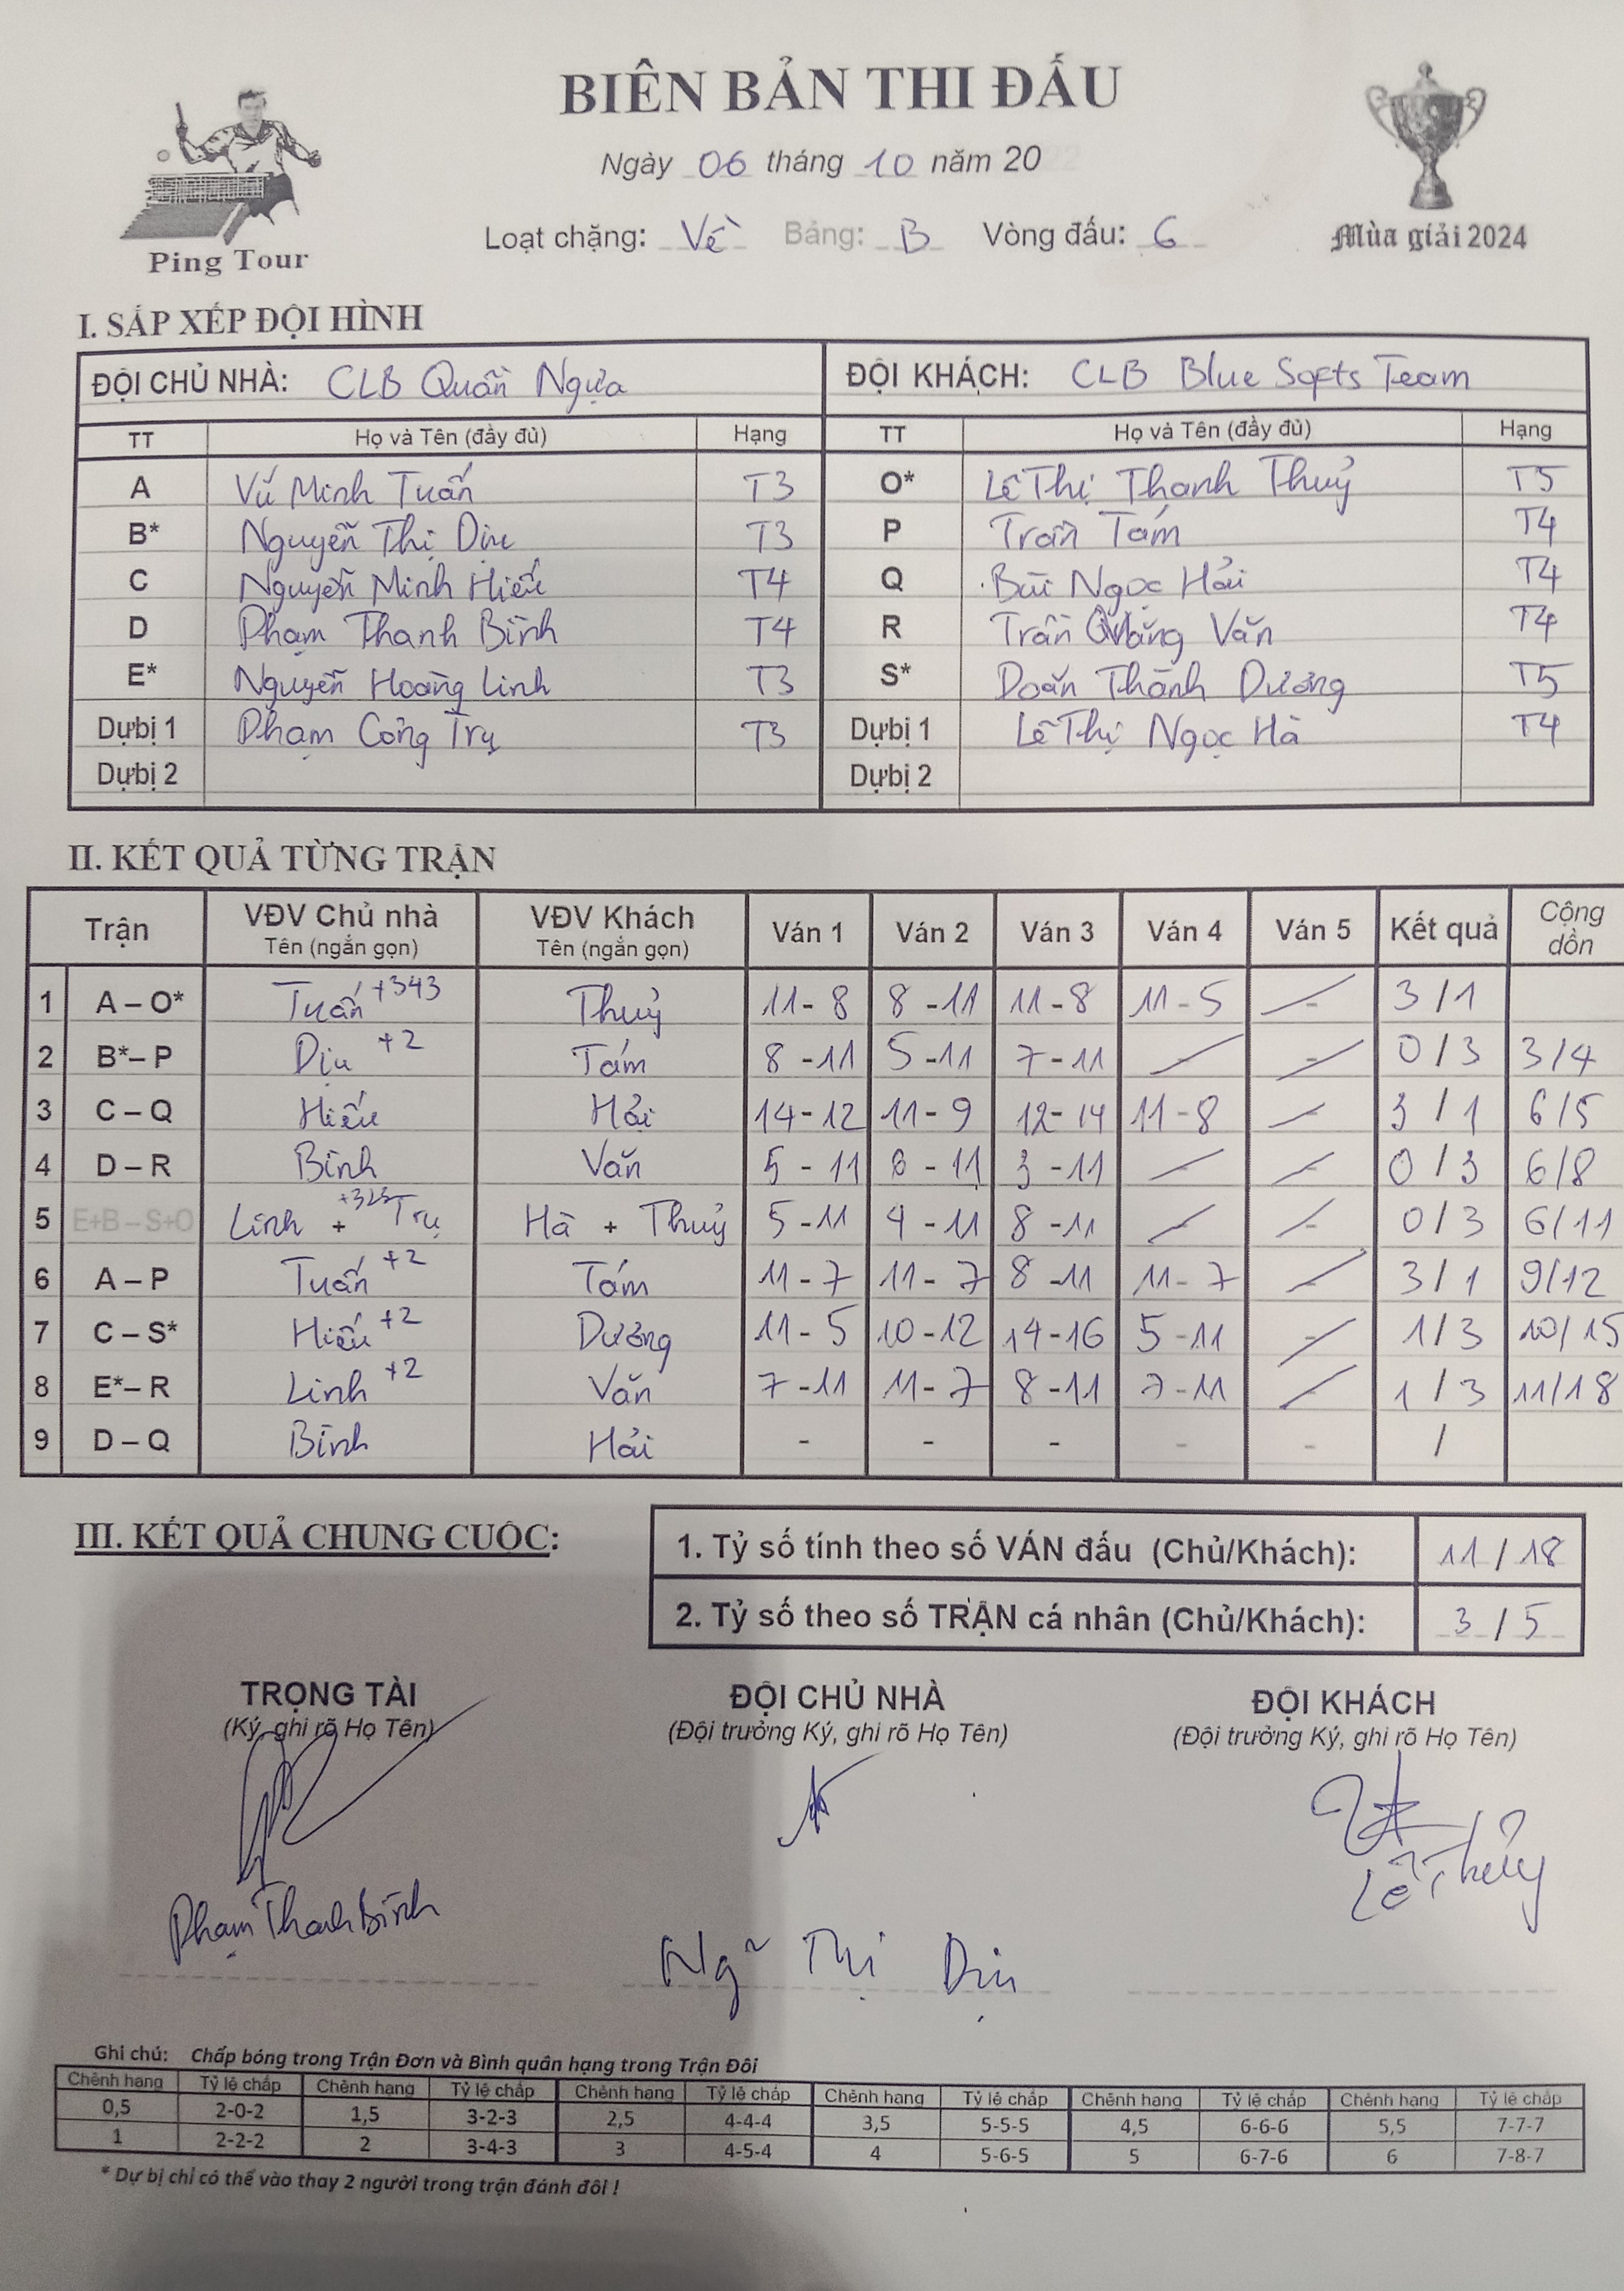 BIÊN BẢN THI ĐẤU
Ngày 06 tháng 10 năm 20
Ping Tour
Loạt chặng: Về Bảng: B Vòng đấu: 6
Mùa giải 2024
I. SẮP XẾP ĐỘI HÌNH
ĐỘI CHỦ NHÀ: CLB Quần Ngựa ĐỘI KHÁCH: CLB Blue Softs Team
TT Họ và Tên (đầy đủ) Hạng TT Họ và Tên (đầy đủ) Hạng
A Vũ Minh Tuấn T3 O* Lê Thị Thanh Thuỷ T5
B* Nguyễn Thị Dịu T3 P Trần Tám T4
C Nguyễn Minh Hiếu T4 Q Bùi Ngọc Hải T4
D Phạm Thanh Bình T4 R Trần Văn T4
E* Nguyễn Hoàng Linh T3 S* Doãn Thành Dương T5
Dự bị 1 Phạm Công Trụ T3 Dự bị 1 Lê Thị Ngọc Hà T4
Dự bị 2 Dự bị 2
II. KẾT QUẢ TỪNG TRẬN
Trận VĐV Chủ nhà VĐV Khách Ván 1 Ván 2 Ván 3 Ván 4 Ván 5 Kết quả Cộng dồn
Tên (ngắn gọn) Tên (ngắn gọn)
1 A – O* Tuấn +343 Thuỷ 11 - 8 8 - 11 11 - 8 11 - 5 - 3 / 1
2 B* – P Dịu +2 Tám 8 - 11 5 - 11 7 - 11 - - 0 / 3 3/4
3 C – Q Hiếu Hải 14 - 12 11 - 9 12 - 14 11 - 8 - 3 / 1 6/5
4 D – R Bình Văn 5 - 11 6 - 11 3 - 11 - - 0 / 3 6/8
5 E+B – S+O Linh + Trụ Hà + Thuỷ 5 - 11 4 - 11 8 - 11 - - 0 / 3 6/11
6 A – P Tuấn +2 Tám 11 - 7 11 - 7 8 - 11 11 - 7 - 3 / 1 9/12
7 C – S* Hiếu +2 Dương 11 - 5 10 - 12 14 - 16 5 - 11 - 1 / 3 10/15
8 E* – R Linh +2 Văn 7 - 11 11 - 7 8 - 11 7 - 11 - 1 / 3 11/18
9 D – Q Bình Hải - - - - - /
III. KẾT QUẢ CHUNG CUỘC:
1. Tỷ số tính theo số VÁN đấu (Chủ/Khách): 11 / 18
2. Tỷ số theo số TRẬN cá nhân (Chủ/Khách): 3 / 5
TRỌNG TÀI ĐỘI CHỦ NHÀ ĐỘI KHÁCH
(Ký, ghi rõ Họ Tên) (Đội trưởng Ký, ghi rõ Họ Tên) (Đội trưởng Ký, ghi rõ Họ Tên)
Lê Thủy
Phạm Thanh Bình
Ng~ Thị Dịu
Ghi chú: Chấp bóng trong Trận Đơn và Bình quân hạng trong Trận Đôi
Chênh hạng Tỷ lệ chấp Chênh hạng Tỷ lệ chấp Chênh hạng Tỷ lệ chấp Chênh hạng Tỷ lệ chấp Chênh hạng Tỷ lệ chấp Chênh hạng Tỷ lệ chấp
0,5 2-0-2 1,5 3-2-3 2,5 4-4-4 3,5 5-5-5 4,5 6-6-6 5,5 7-7-7
1 2-2-2 2 3-4-3 3 4-5-4 4 5-6-5 5 6-7-6 6 7-8-7
* Dự bị chỉ có thể vào thay 2 người trong trận đánh đôi !